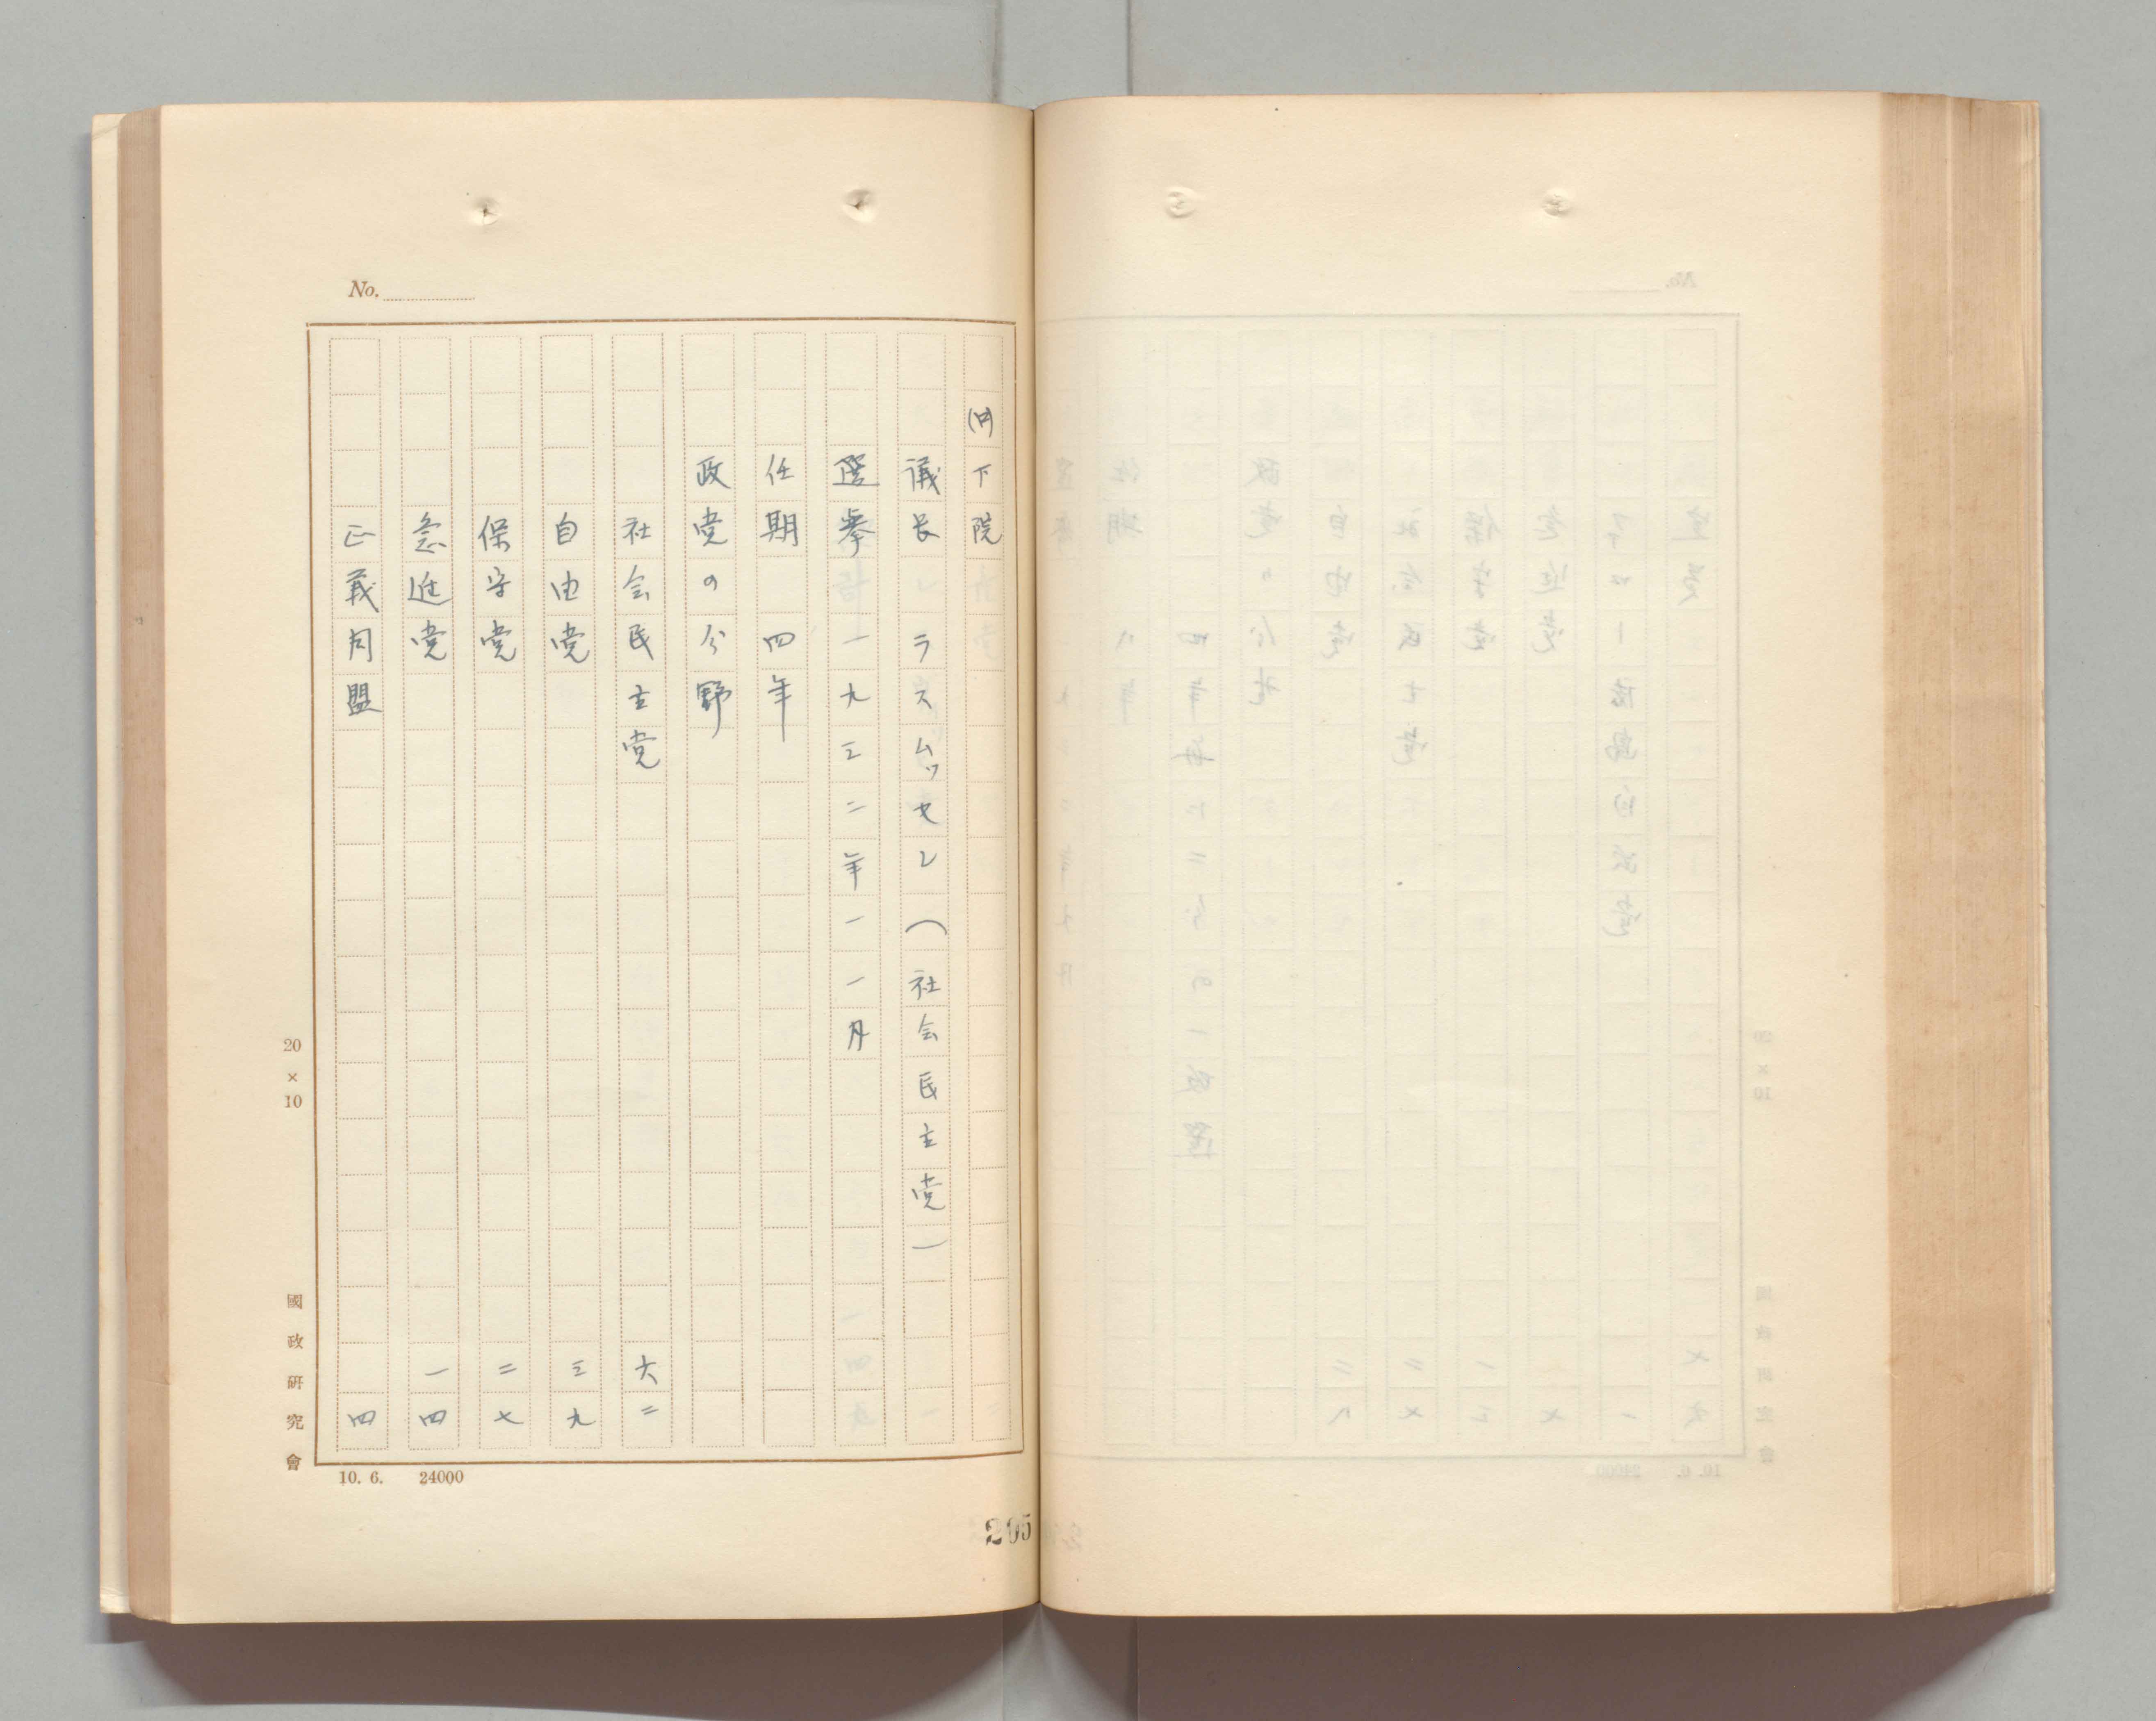 No.
(ロ)下院
議長 ラスムッセン(社会民主党)
選挙 一九三二年一一月
任期 四年
政党の分野
社会民主党 六二
自由党 三九
保守党 二七
急進党 一四
正義同盟 四
20×10
國政研究會
10. 6. 24000
205